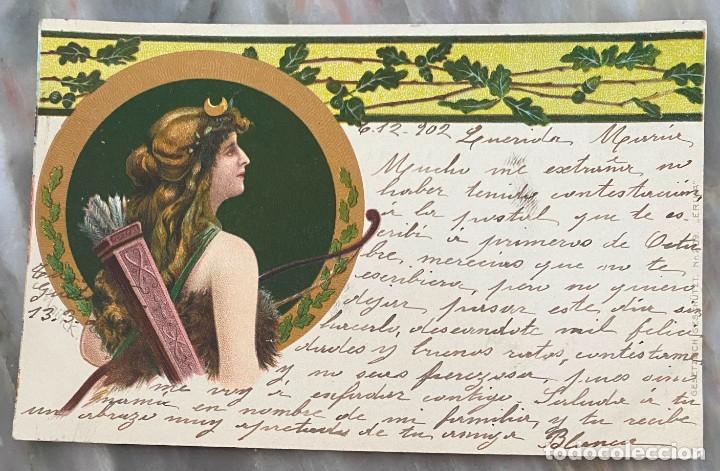 6.12-902 Querida María
Mucho me extraña no
haber tenido contestación
á la postal que te es
cribí á primeros de Octu
bre, merecias que no te
escribiera, pero no quiero
dejar pasar este dia sin
hacerlo, deseandote mil felici
dades y buenos ratos, contéstame
y no seas perezosa, pues sino
me voy á enfadar contigo. Saluda á tu
mamá en nombre de mi familia, y tu recibe
un abrazo muy apretado de tu amiga Blanca
13.3
GESETZLICH GESCHÜTZT. „ERIKA"
todocoleccion